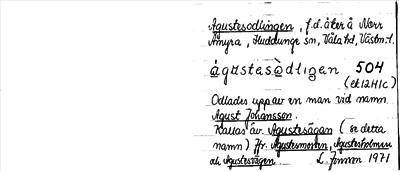 Agustesodlingen, f.d. åker å Norr
Myra, Huddunge sn, Våla hd, Västm. l.
águstesòdlıŋen 504
(ek 12 H 1 c)
Odlades upp av en man vid namn
Agust Johansson.
Kallas äv. Agustesägan (se detta
namn) Jfr. Agustesmorten, Agustesholmen
och Agustesvägen L. Jonson 1971